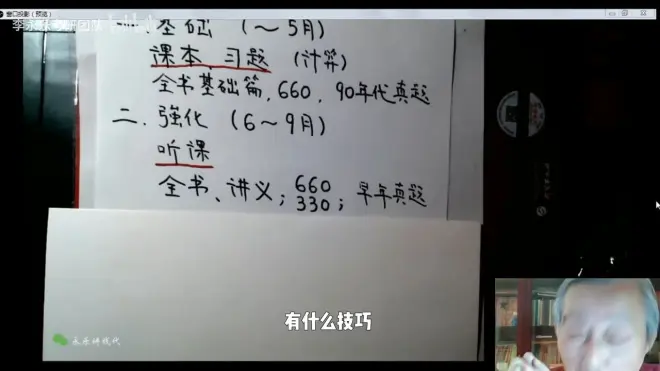 窗口投影（预览）
基础（～5月）
课本、习题（计算）
全书基础篇，660，90年代真题
二、强化（6～9月）
听课
全书、讲义；660 330；早年真题
有什么技巧
永乐讲线代